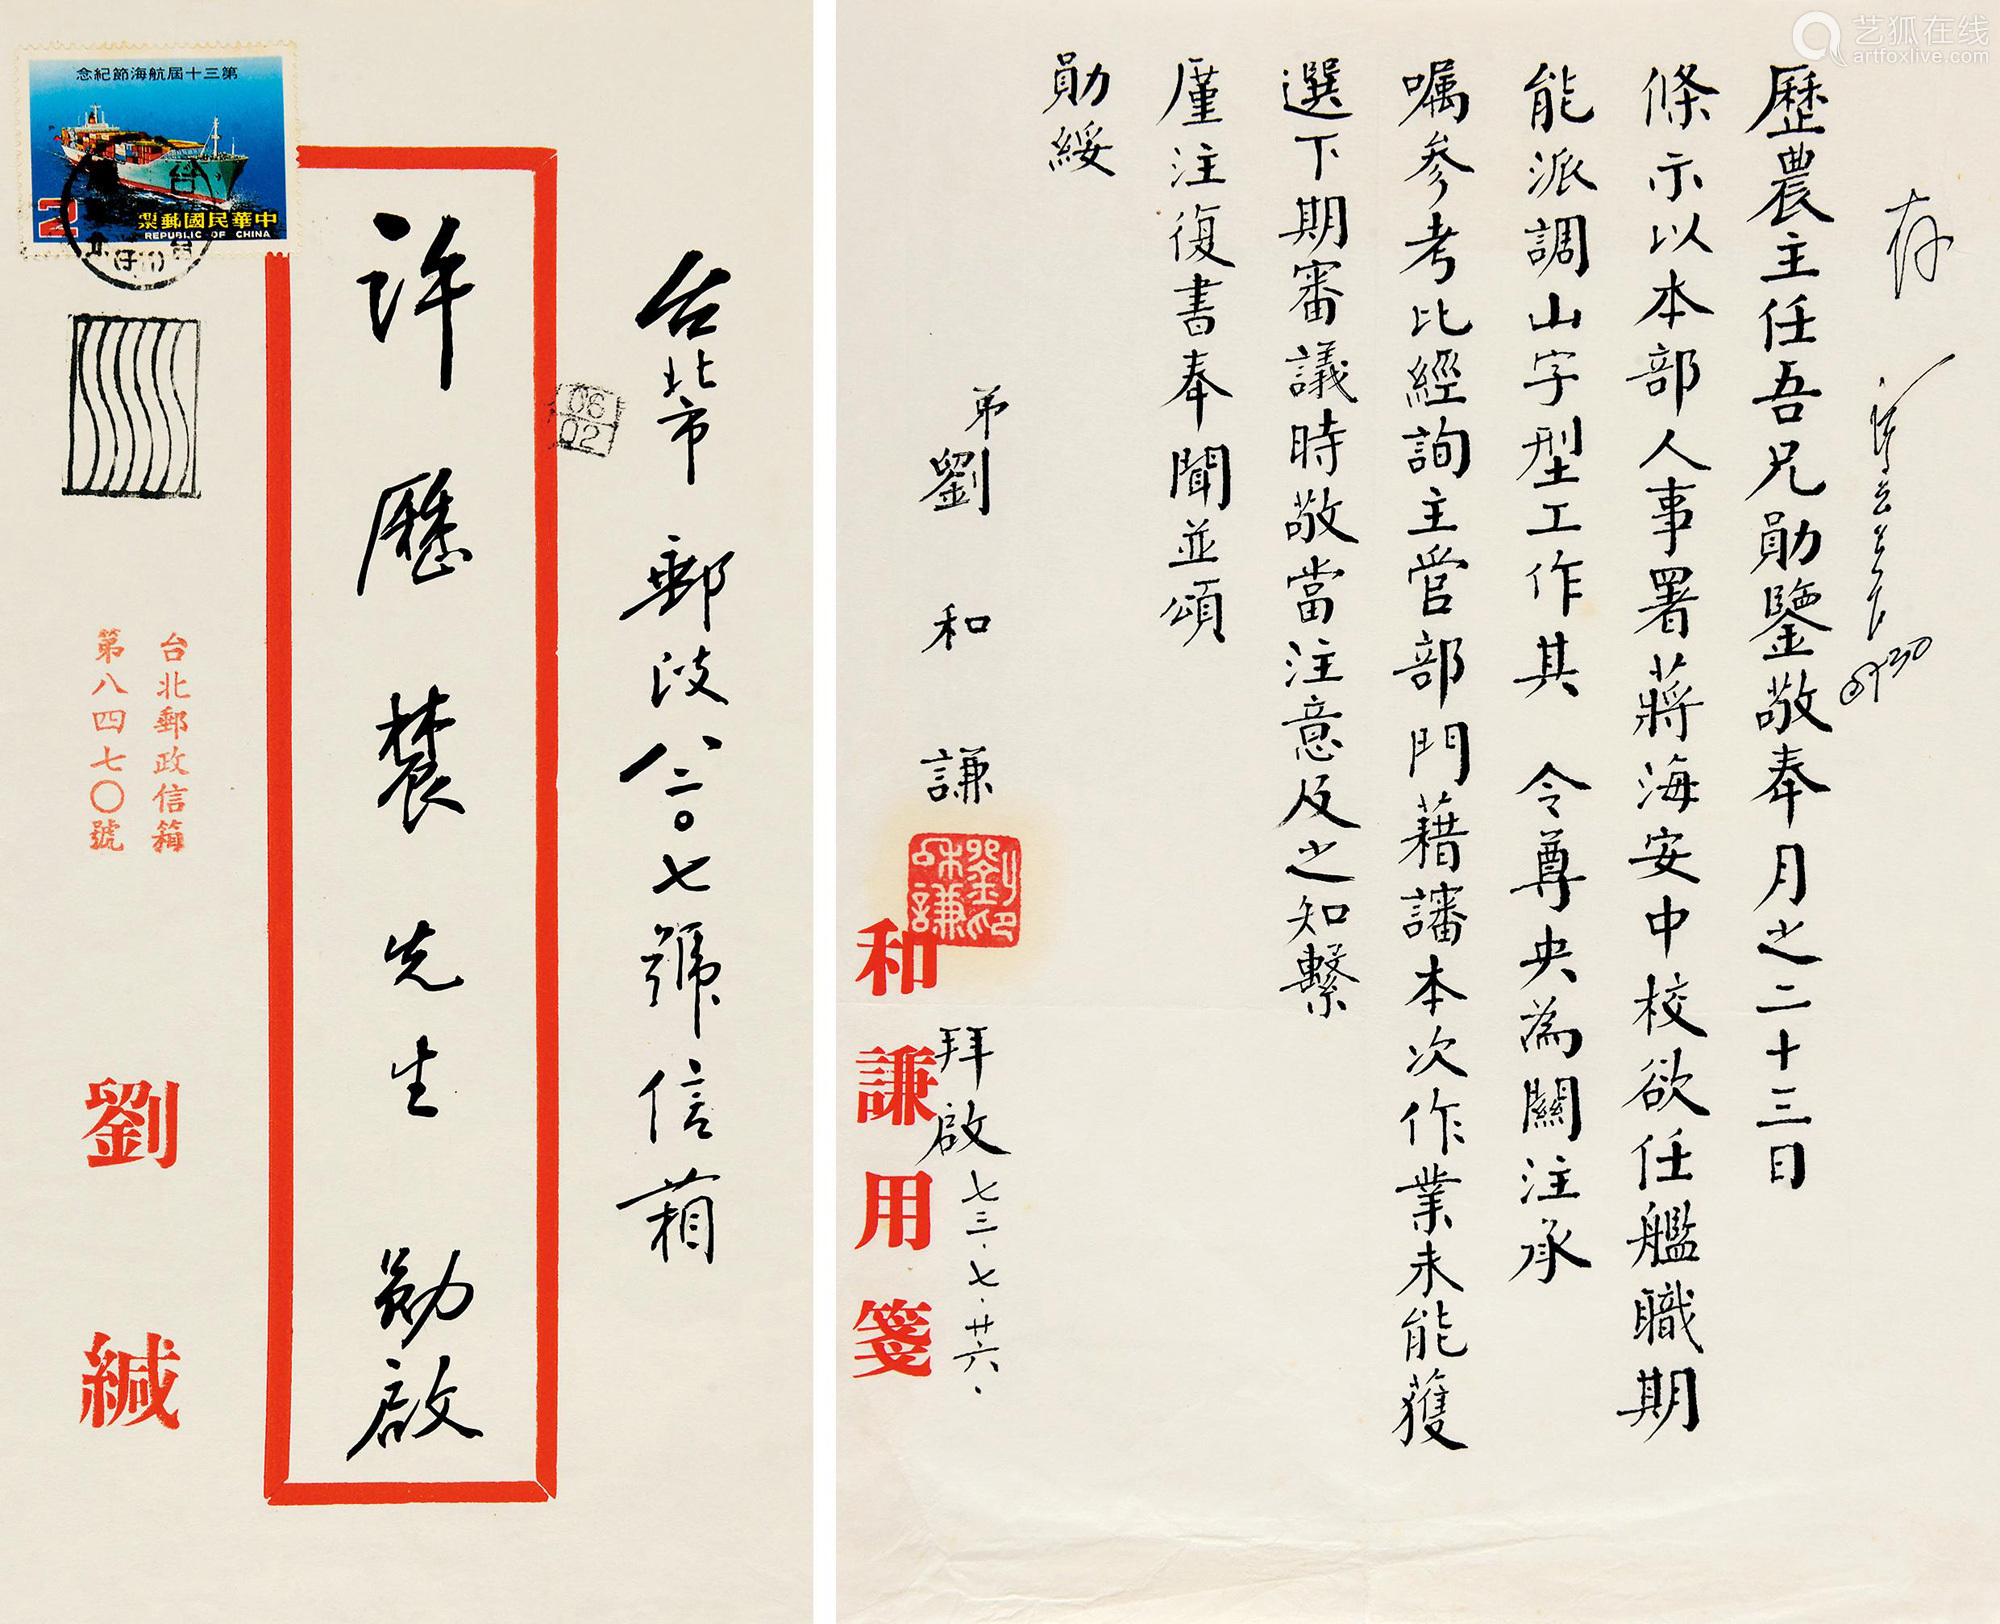 第三十屆航海節紀念
2
中華民國郵票
REPUBLIC OF CHINA
06
02
台北市郵政八二〇七號信箱
許歷農先生 勛啟
台北郵政信箱
第八四七〇號
劉緘
艺狐在线
artfoxlive.com
存
歷農主任吾兄勛鑒敬奉月之二十三日
條示以本部人事署蔣海安中校欲任艦職期
能派調山字型工作其 令尊央為關注承
囑參考比經詢主官部門藉讅本次作業未能獲
選下期審議時敬當注意及之知繫
廑注復書奉聞並頌
勛綏
弟劉和謙 拜啟 七三、七、廿六、
劉和謙印
和謙用箋